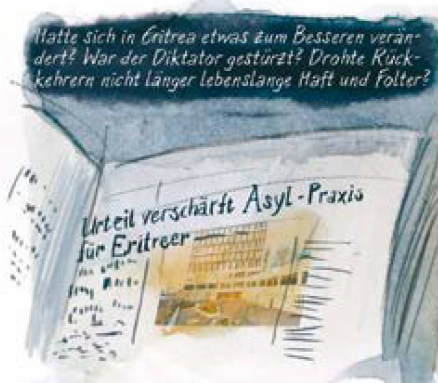 Hatte sich in Eritrea etwas zum Besseren verän-
dert? War der Diktator gestürzt? Drohte Rück-
kehrern nicht länger lebenslange Haft und Folter?
Urteil verschärft Asyl-Praxis
für Eritreer